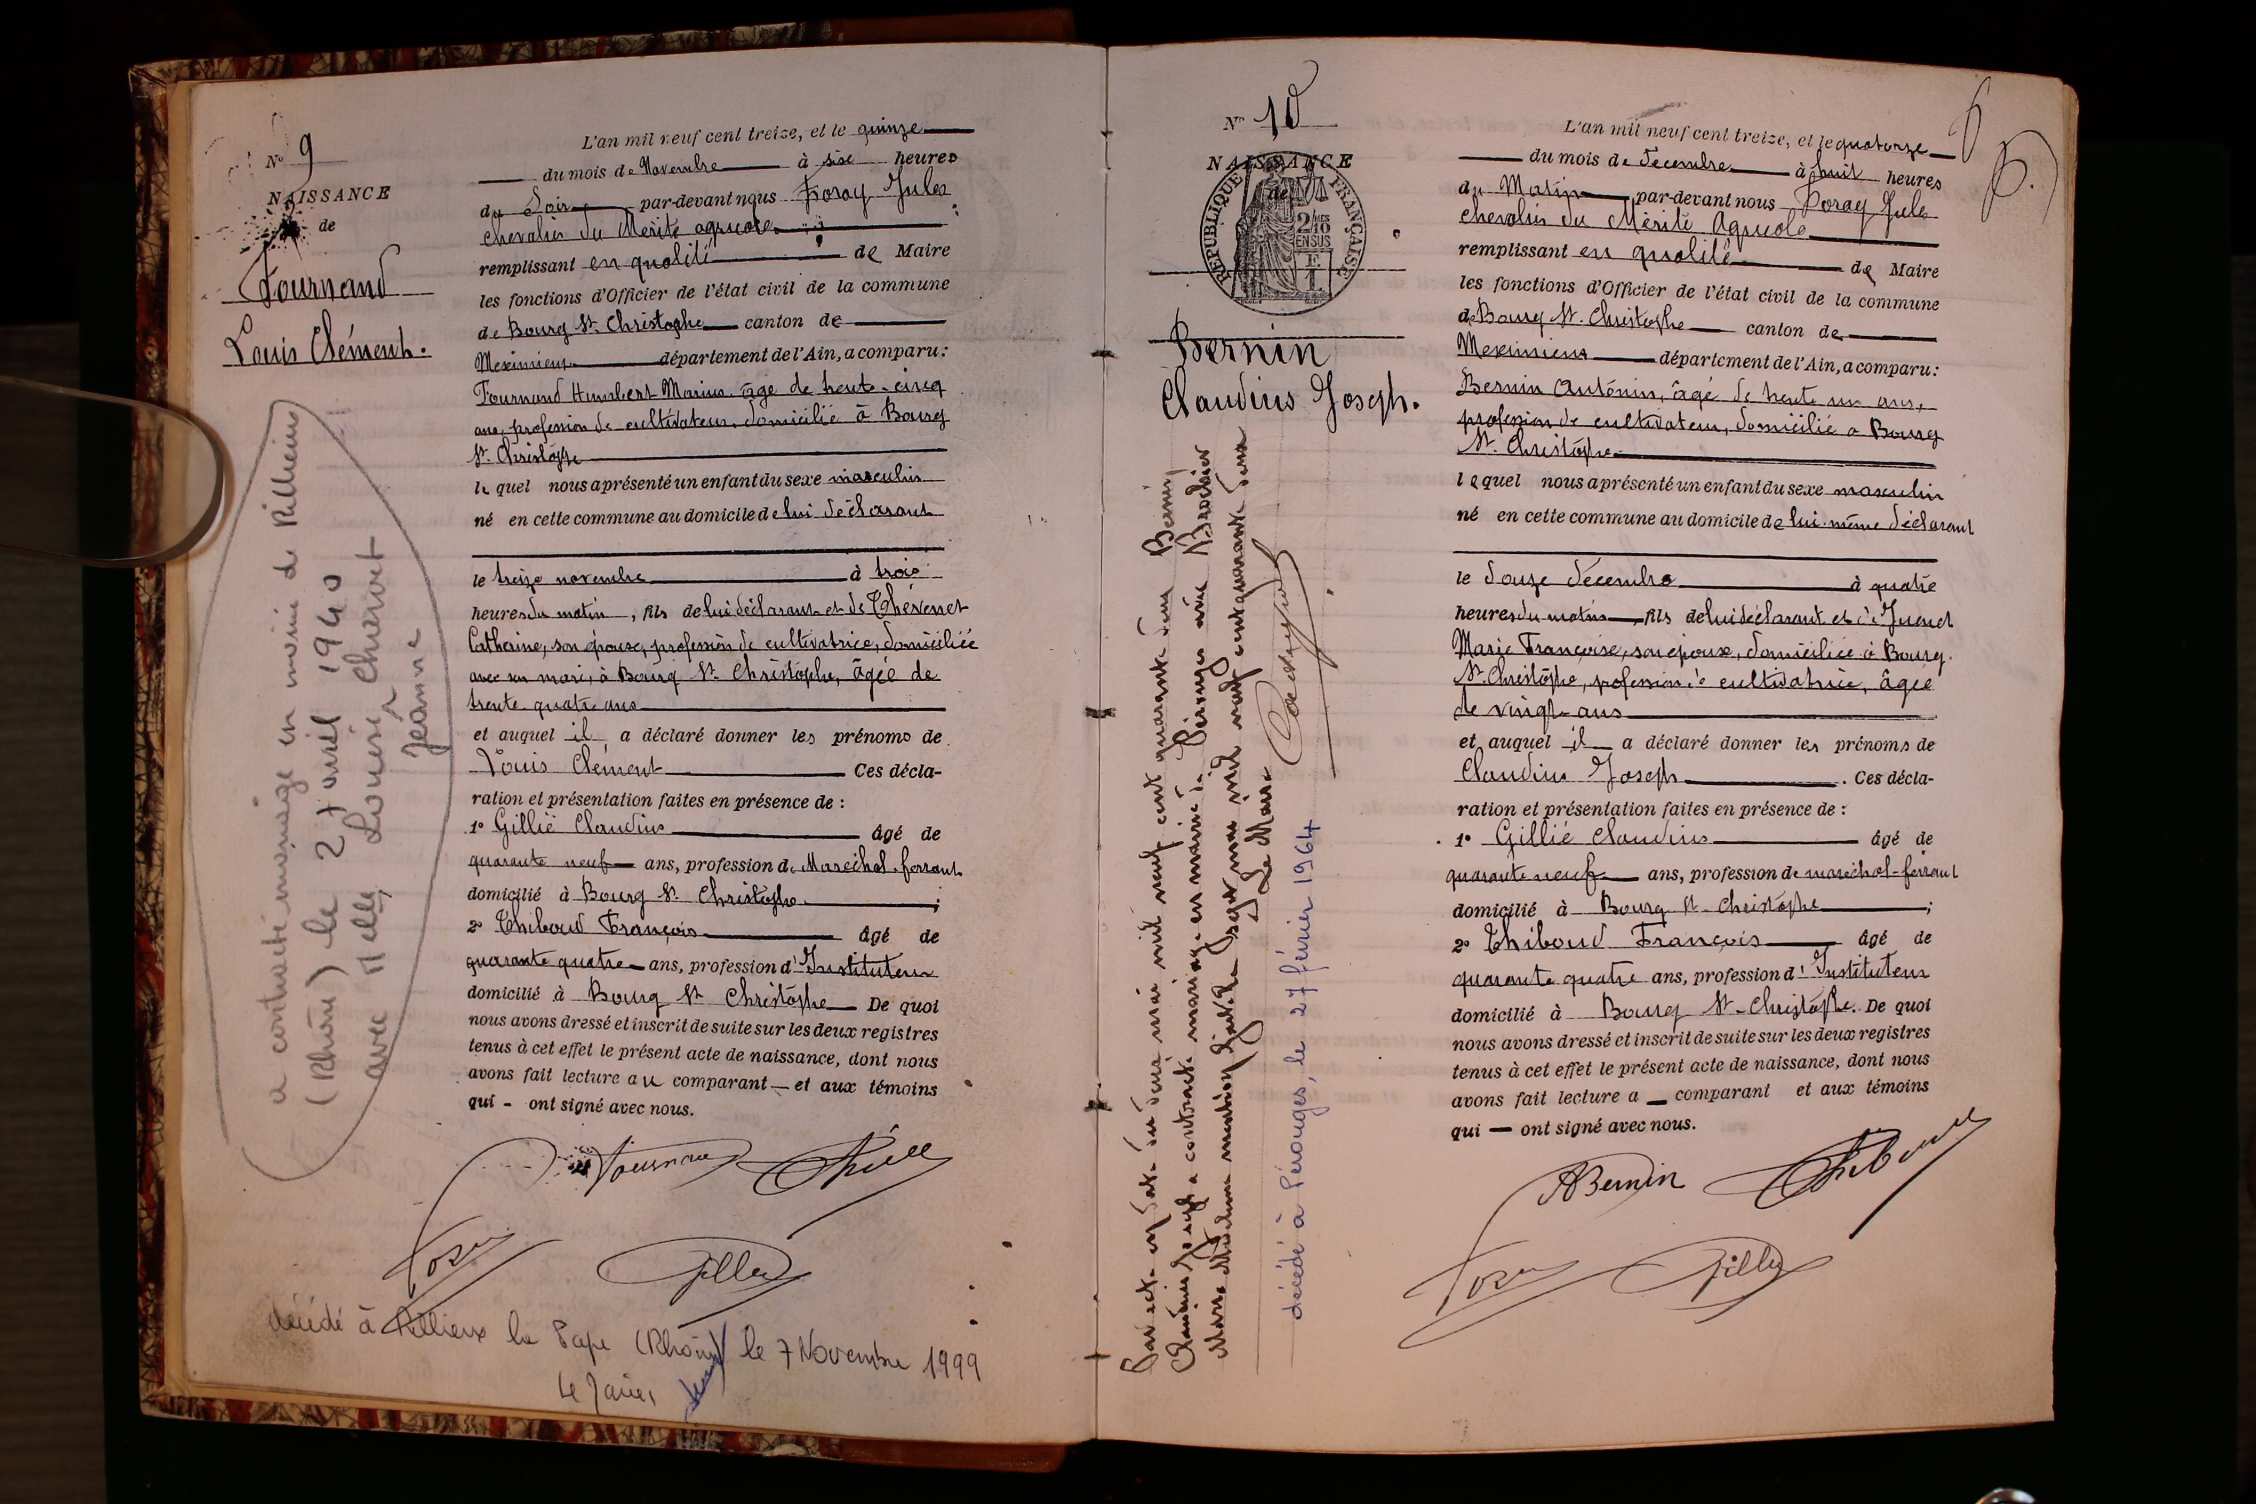 N° 9
NAISSANCE
de
Fournand
Louis Clément.
a contracté mariage en mairie de Rillieux
(Rhône) le 27 avril 1940
avec Melle Louise Charvet
Jeanne
L'an mil neuf cent treize, et le quinze
du mois de Novembre à six heures
du Soir par-devant nous Foray Jules
chevalier du Mérite agricole
remplissant en qualité de Maire
les fonctions d'Officier de l'état civil de la commune
de Bourg St. Christophe canton de
Meximieux département de l'Ain, a comparu :
Fournand Humbert Marius, âgé de trente-cinq
ans, profession de cultivateur, domicilié à Bourg
St. Christophe
lequel nous a présenté un enfant du sexe masculin
né en cette commune au domicile de lui déclarant
le treize novembre à trois
heures du matin, fils de lui déclarant et de Thévenet
Catherine, son épouse, profession de cultivatrice, domiciliée
avec son mari, à Bourg St. Christophe, âgée de
trente quatre ans
et auquel il a déclaré donner les prénoms de
Louis Clément Ces décla-
ration et présentation faites en présence de :
1° Gillié Claudius âgé de
quarante neuf ans, profession de Maréchal-ferrant
domicilié à Bourg St. Christophe ;
2° Thiboud François âgé de
quarante quatre ans, profession d'Instituteur
domicilié à Bourg St Christophe De quoi
nous avons dressé et inscrit de suite sur les deux registres
tenus à cet effet le présent acte de naissance, dont nous
avons fait lecture au comparant et aux témoins
qui - ont signé avec nous.
Fournand
Foray Gillié
décédé à Rillieux la Pape (Rhône) le 7 Novembre 1999
Le Maire,
N° 10
NAISSANCE
de
RÉPUBLIQUE FRANÇAISE
2/10
EN SUS
Bernin
Claudius Joseph.
Par acte en date du deux mai mil neuf cent quarante deux Bernin
Claudius Joseph a contracté mariage en mairie de Pérouges avec
Marie
Le Maire
décédé à Pérouges, le 27 février 1964
L'an mil neuf cent treize, et le quatorze
du mois de Décembre à huit heures
du Matin par-devant nous Foray Jules
chevalier du Mérite Agricole
remplissant en qualité de Maire
les fonctions d'Officier de l'état civil de la commune
de Bourg St. Christophe canton de
Meximieux département de l'Ain, a comparu :
Bernin Antonin, âgé de trente un ans,
profession de cultivateur, domicilié à Bourg
St. Christophe
lequel nous a présenté un enfant du sexe masculin
né en cette commune au domicile de lui-même déclarant
le douze décembre à quatre
heures du matin, fils de lui déclarant et de Juenet
Marie Françoise, son épouse, domiciliée à Bourg.
St. Christophe, profession de cultivatrice, âgée
de vingt ans
et auquel il a déclaré donner les prénoms de
Claudius Joseph. Ces décla-
ration et présentation faites en présence de :
1° Gillié Claudius âgé de
quarante neuf ans, profession de maréchal-ferrant
domicilié à Bourg St. Christophe ;
2° Thiboud François âgé de
quarante quatre ans, profession d'Instituteur
domicilié à Bourg St-Christophe. De quoi
nous avons dressé et inscrit de suite sur les deux registres
tenus à cet effet le présent acte de naissance, dont nous
avons fait lecture a comparant et aux témoins
qui — ont signé avec nous.
ABernin Thiboud
Foray Gillié